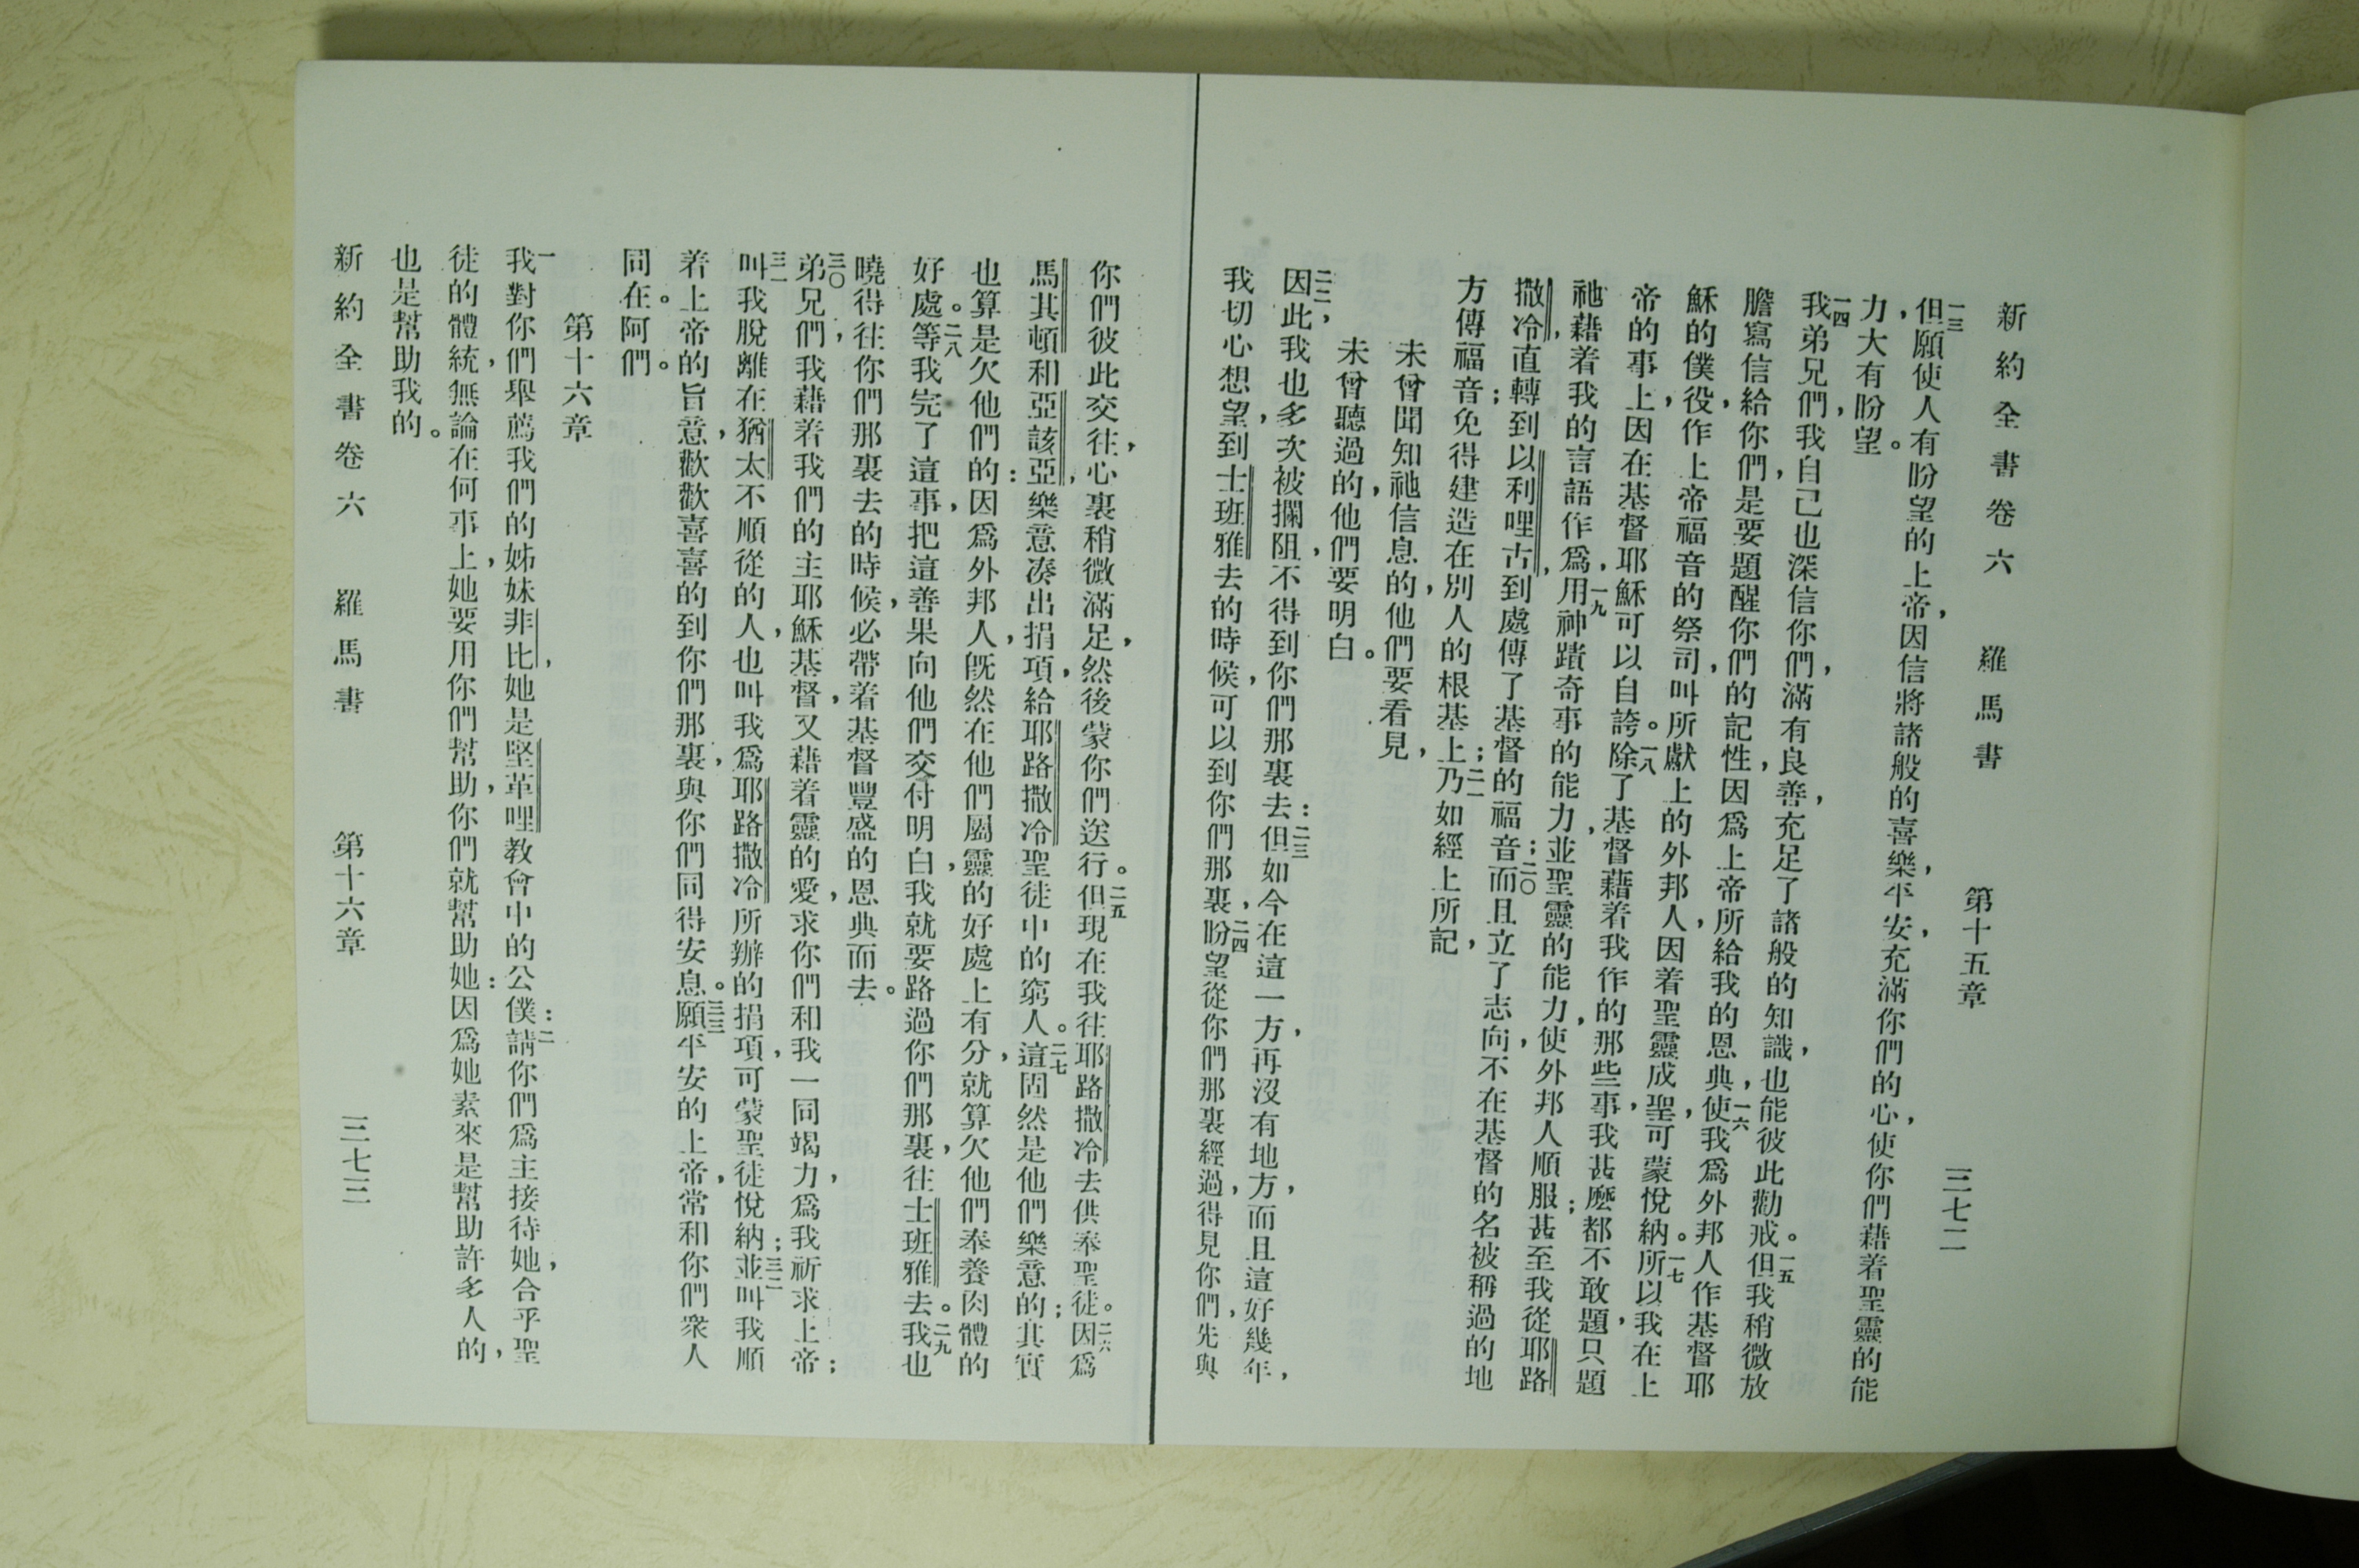 新約全書卷六　羅馬書　第十五章　三七二
一三但願使人有盼望的上帝，因信將諸般的喜樂，平安，充滿你們的心，使你們藉着聖靈的能
力，大有盼望。
一四我弟兄們，我自己也深信你們，滿有良善，充足了諸般的知識，也能彼此勸戒。一五但我稍微放
膽寫信給你們，是要題醒你們的記性，因爲上帝所給我的恩典，一六使我爲外邦人作基督耶
穌的僕役，作上帝福音的祭司，叫所獻上的外邦人，因着聖靈成聖，可蒙悅納。一七所以我在上
帝的事上，因在基督耶穌可以自誇。一八除了基督藉着我作的那些事，我甚麽都不敢題，只題
祂藉着我的言語作爲，一九用神蹟奇事的能力，並聖靈的能力，使外邦人順服；甚至我從耶路
撒冷，直轉到以利哩古，到處傳了基督的福音；二〇而且立了志向，不在基督的名被稱過的地
方傳福音；免得建造在別人的根基上；二一乃如經上所記，
未曾聞知祂信息的，他們要看見，
未曾聽過的，他們要明白。
二二，因此我也多次被攔阻，不得到你們那裏去：二三但如今在這一方，再沒有地方，而且這好幾年，
我切心想望，到士班雅去的時候，可以到你們那裏，二四盼望從你們那裏經過，得見你們，先與
你們彼此交往，心裏稍微滿足，然後蒙你們送行。二五但現在我往耶路撒冷去供奉聖徒。二六因爲
馬其頓和亞該亞，樂意凑出捐項，給耶路撒冷聖徒中的窮人。二七這固然是他們樂意的；其實
也算是欠他們的：因爲外邦人，旣然在他們屬靈的好處上有分，就算欠他們奉養肉體的
好處。二八等我完了這事，把這善果向他們交付明白，我就要路過你們那裏，往士班雅去。二九我也
曉得往你們那裏去的時候，必帶着基督豐盛的恩典而去。
三〇弟兄們，我藉着我們的主耶穌基督，又藉着靈的愛，求你們和我一同竭力，爲我祈求上帝；
三一叫我脫離在猶太不順從的人，也叫我爲耶路撒冷所辦的捐項，可蒙聖徒悅納；三二並叫我順
着上帝的旨意，歡歡喜喜的到你們那裏，與你們同得安息。三三願平安的上帝，常和你們衆人
同在。阿們。
第十六章
一我對你們舉薦我們的姊妹非比，她是堅革哩教會中的公僕：二請你們爲主接待她，合乎聖
徒的體統，無論在何事上，她要用你們幫助，你們就幫助她：因爲她素來是幫助許多人的，
也是幫助我的。
新約全書卷六　羅馬書　第十六章　三七三